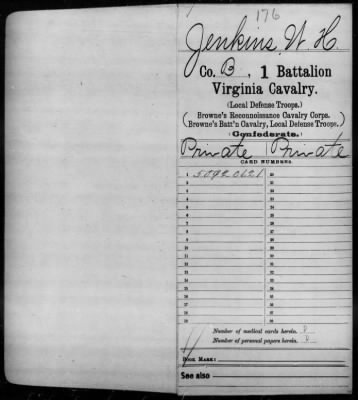 176
Jenkins, W. H.
Co. B, 1 Battalion
Virginia Cavalry.
(Local Defense Troops.)
(Browne's Reconnoissance Cavalry Corps.
Browne's Batt'n Cavalry, Local Defense Troops.)
(Confederate.)
Private | Private
CARD NUMBERS.
1 50920621
20
2
21
3
22
4
23
5
24
6
25
7
26
8
27
9
28
10
29
11
30
12
31
13
32
14
33
15
34
16
35
17
36
18
37
19
38
Number of medical cards herein. 0
Number of personal papers herein. 0
BOOK MARK:
See also